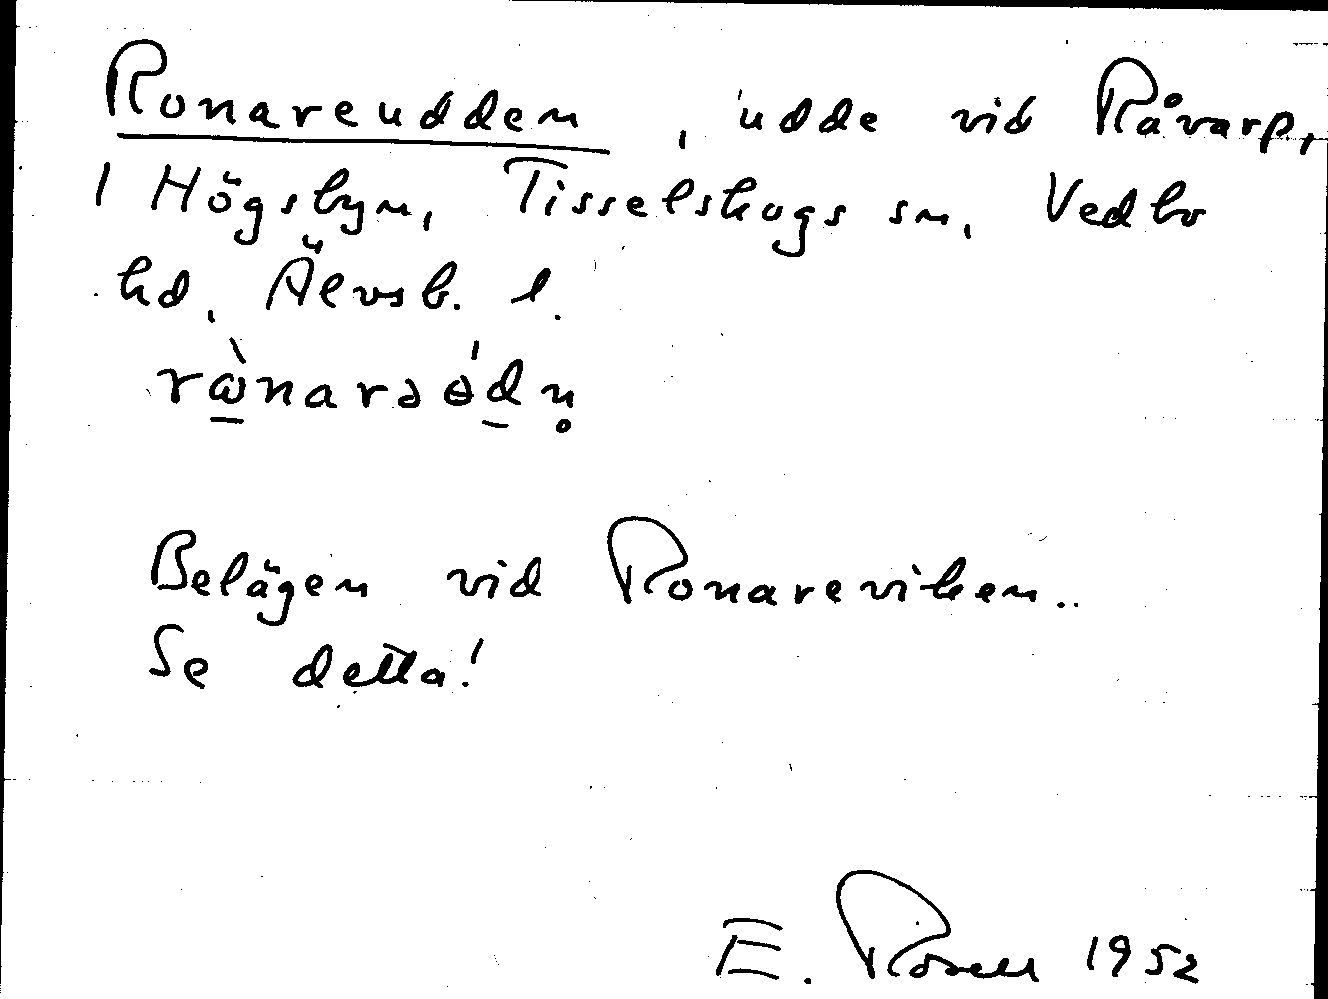 Ronareudden, udde vid Råvarp,
1 Högsbyn, Tisselskogs sn, Vedbo
hd, Älvsb. l.
rὼ̱narəɵ́d̲n̥
Belägen vid Ronareviken..
Se detta!
E. Rosell 1952